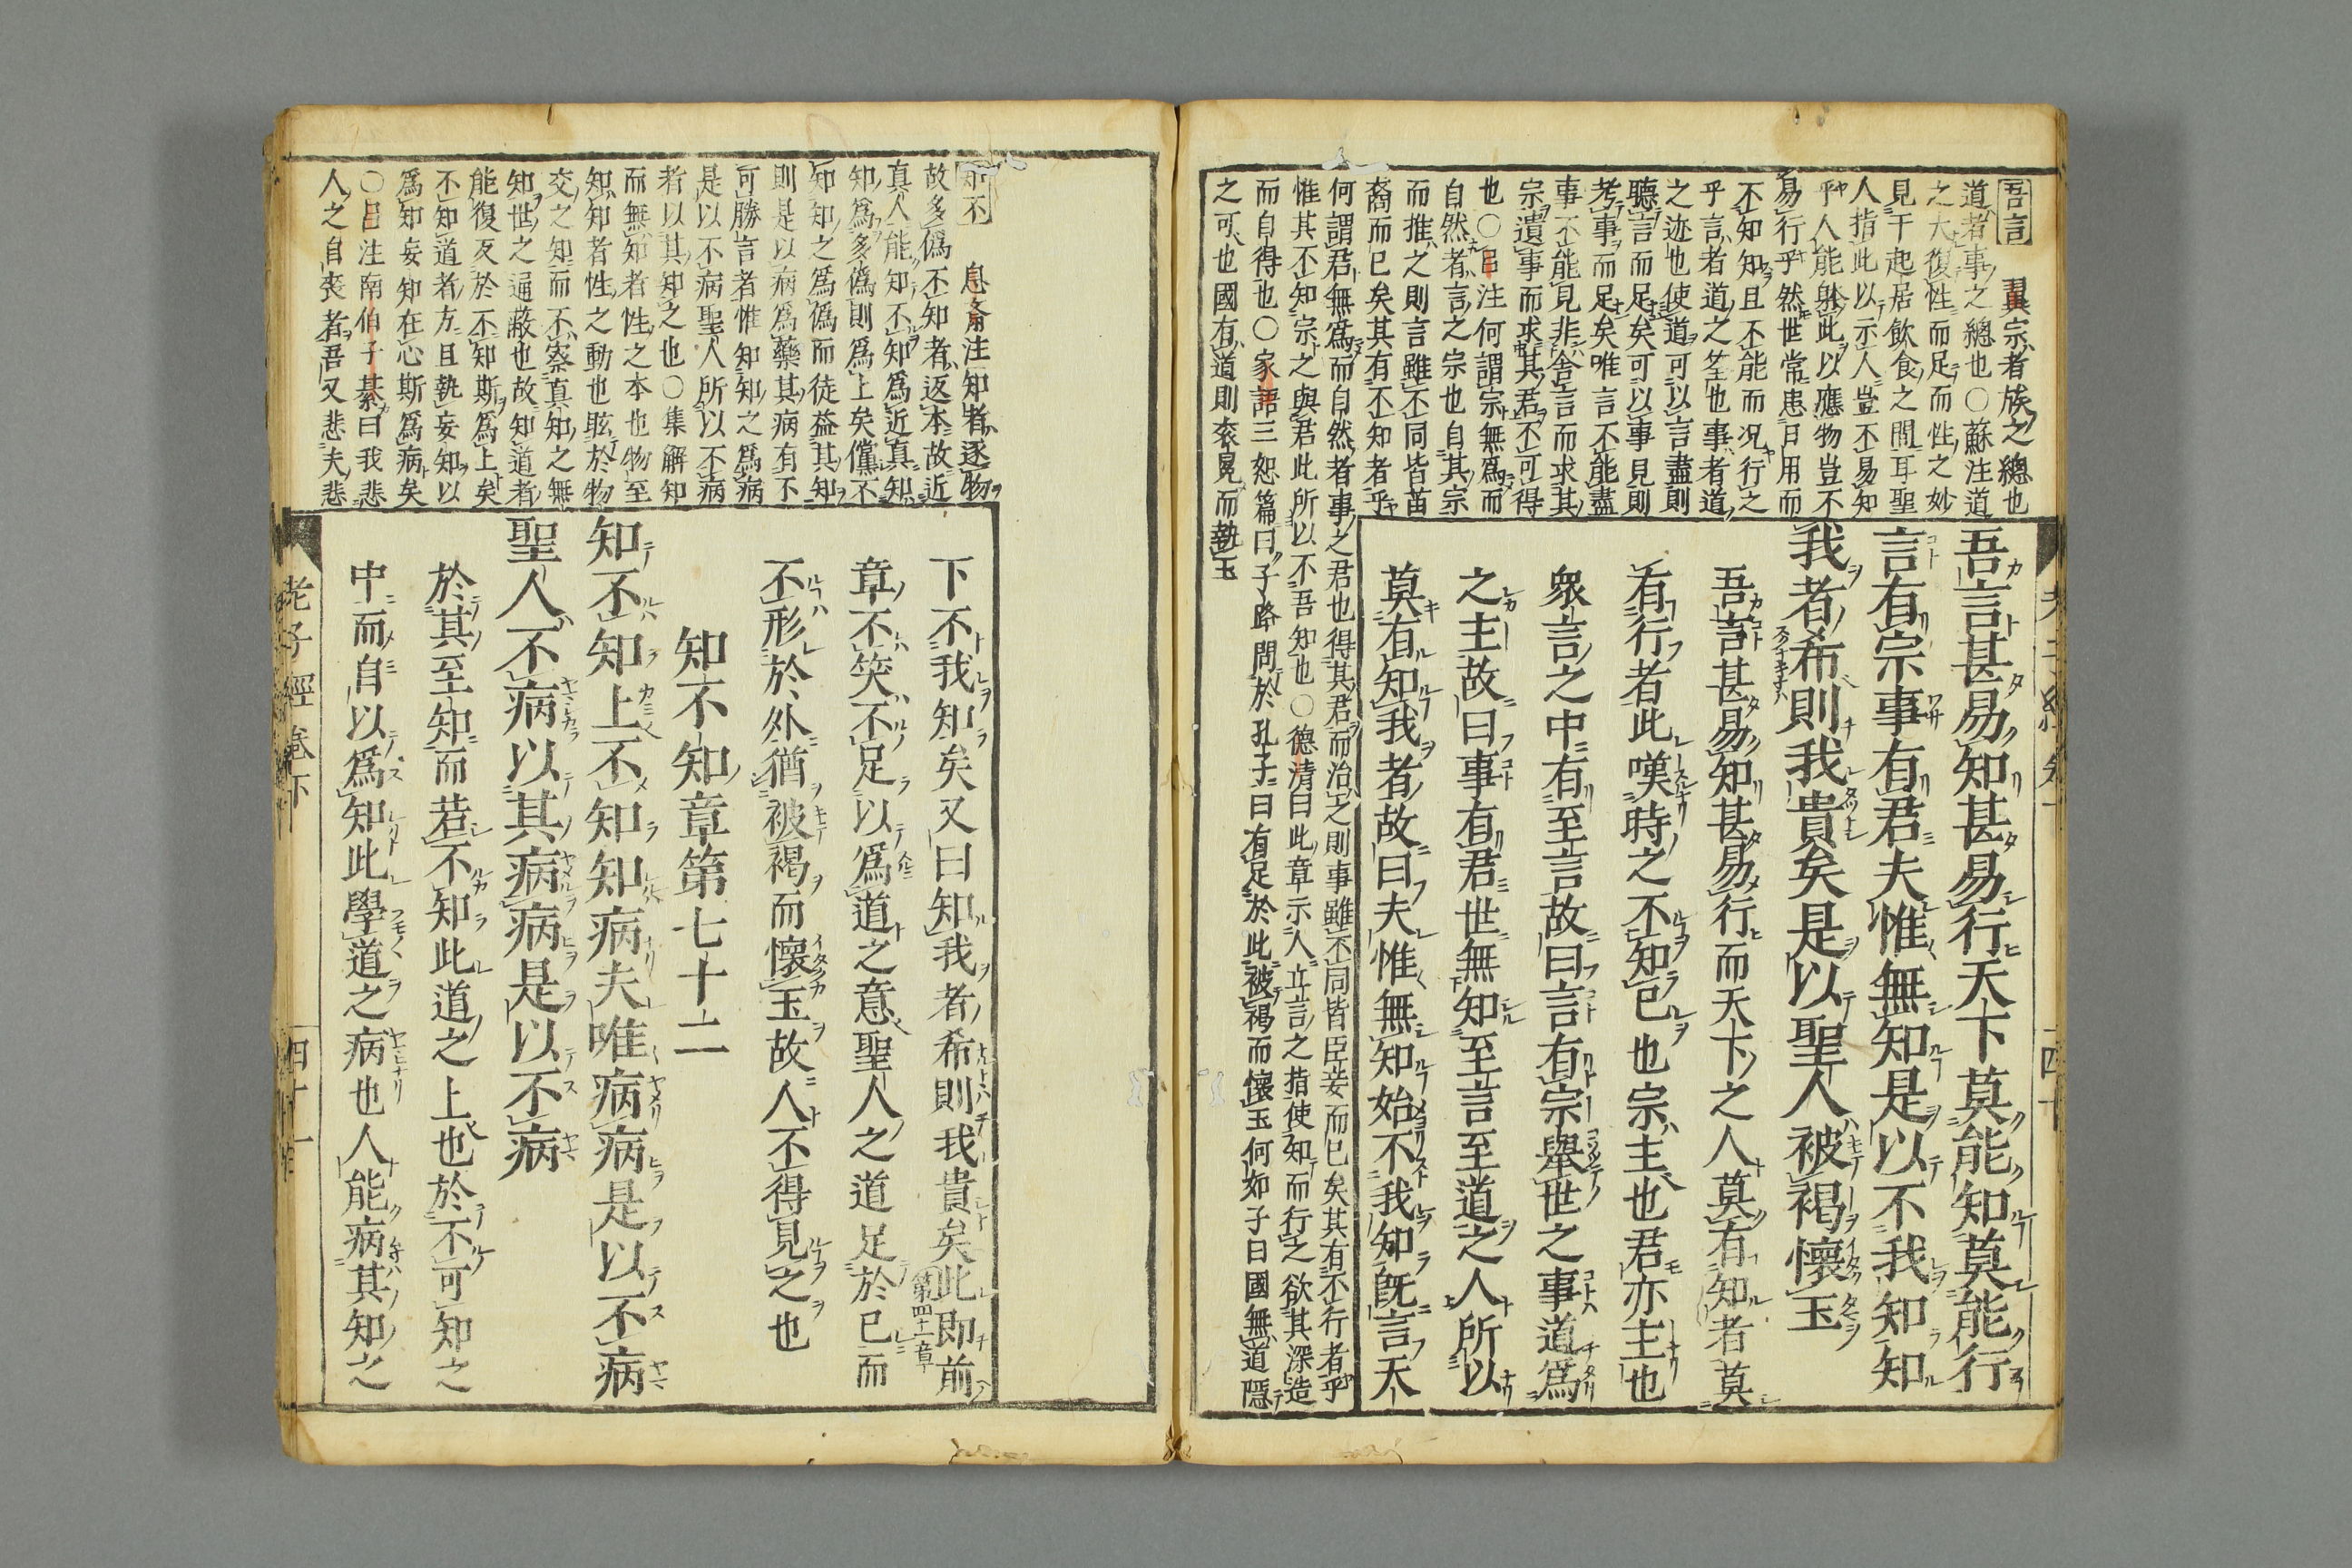 吾言　翼宗者族之總也
道者事之總也○蘇注道
之大復性而足而性之妙
見于起居飲食之間耳聖
人指此以示人豈不易知
乎人能躰此以應物豈不
易行乎然世常患日用而
不知知且不能而况行之
乎言者道之筌也事者道
之迹也使道可以言盡則
聽言而足矣可以事見則
考事而足矣唯言不能盡
事不能見非舍言而求其
宗遺事而求其君不可得
也○呂注何謂宗無爲而
自然者言之宗也自其宗
而推之則言雖不同皆苗
裔而已矣其有不知者乎
何謂君無爲而自然者事之君也得其君而治之則事雖不同皆臣妾而已矣其有不行者乎
惟其不知宗之與君此所以不吾知也○德清曰此章示人立言之指使知而行之欲其深造
而自得也○家語三恕篇曰子路問於孔子曰有足於此被褐而懷玉何如子曰國無道隱
之可也國有道則衮冕而執玉
吾言甚易知甚易行天下莫能知莫能行
言有宗事有君夫惟無知是以不我知知
我者希則我貴矣是以聖人被褐懷玉
吾言甚易知甚易行而天下之人莫有知者莫
有行者此嘆時之不知已也宗主也君亦主也
衆言之中有至言故曰言有宗擧世之事道爲
之主故曰事有君世無知至言至道之人所以
莫有知我者故曰夫惟無知始不我知旣言天
下不我知矣又曰知我者希則我貴矣此即前
第四十一章
章不笑不足以爲道之意聖人之道足於已而
不形於外猶被褐而懷玉故人不得見之也
知不知章第七十二
知不知上不知知病夫唯病病是以不病
聖人不病以其病病是以不病
於其至知而若不知此道之上也於不可知之
中而自以爲知此學道之病也人能病其知之
知不　息齋注知者逐物
故多僞不知者返本故近
真人能知不知爲近真知
知爲多僞則爲上矣儻不
知知之爲僞而徒益其知
則是以病爲藥其病有不
可勝言者惟知知之爲病
是以不病聖人所以不病
者以其知之也○集解知
而無知者性之本也物至
知知者性之動也眩於物
交之知而不察真知之無
知世之通蔽也故知道者
能復反於不知斯爲上矣
不知道者方且執妄知以
爲知妄知在心斯爲病矣
○呂注南伯子綦曰我悲
人之自喪者吾又悲夫悲
老子經卷下　四十一